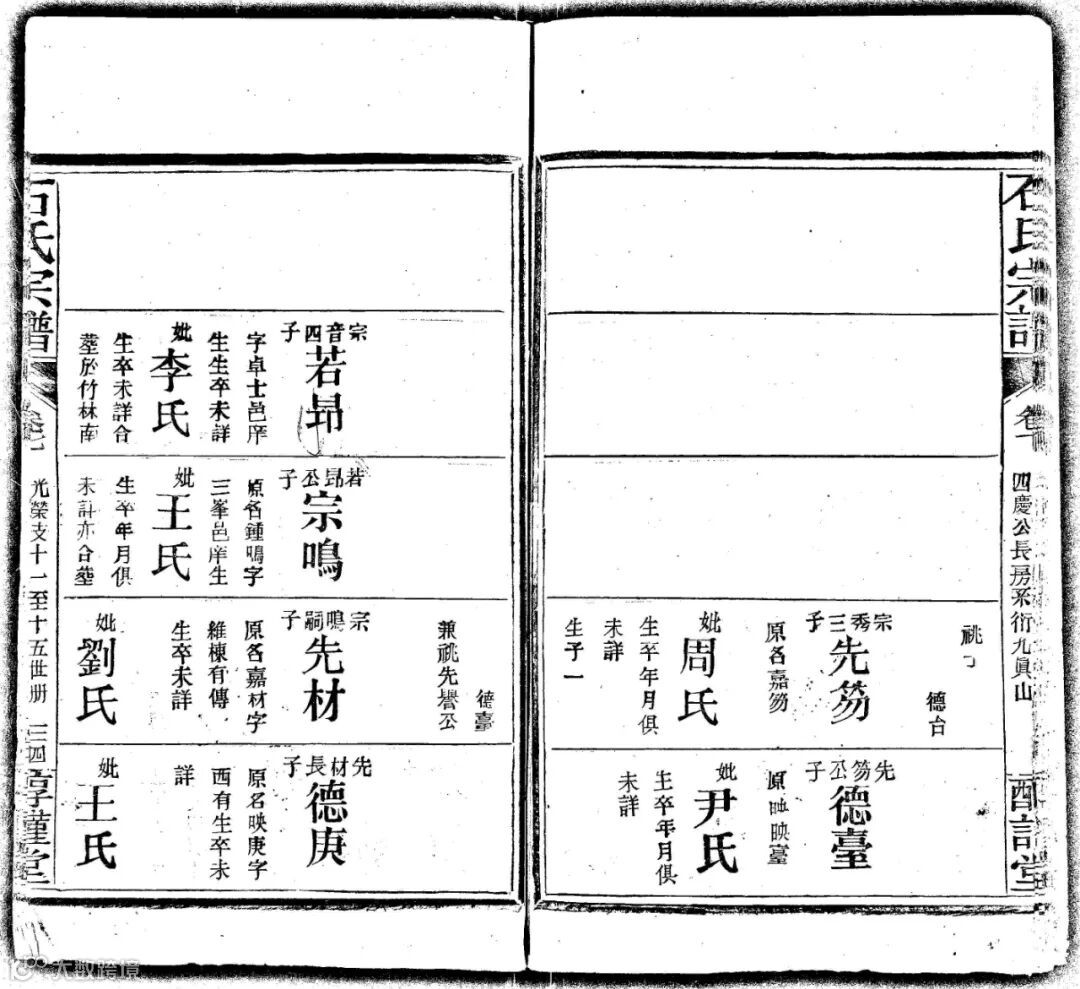 石氏宗譜
卷
四慶公長房禾衍九眞山
祧
德台
宗秀三子
先笏
原名嘉笏
妣
周氏
生卒年月俱
未詳
生子一
先笏公子
德臺
原 映臺
妣
尹氏
生卒年月俱
未詳
宗音四子
若昻
字卓士邑庠
生生卒未詳
妣
李氏
生卒未詳合
塟於竹林南
若昻公子
宗鳴
原名鍾鳴字
三峯邑庠生
妣
王氏
生卒年月俱
未詳亦合塟
德臺
兼祧先譽公
宗鳴嗣子
先材
原名嘉材字
維棟有傳
生卒未詳
妣
劉氏
先材長子
德庚
原名映庚字
西有生卒未
詳
妣
王氏
石氏宗譜
卷
光榮支十一至十五世册
三四
惇謹堂
大数跨境